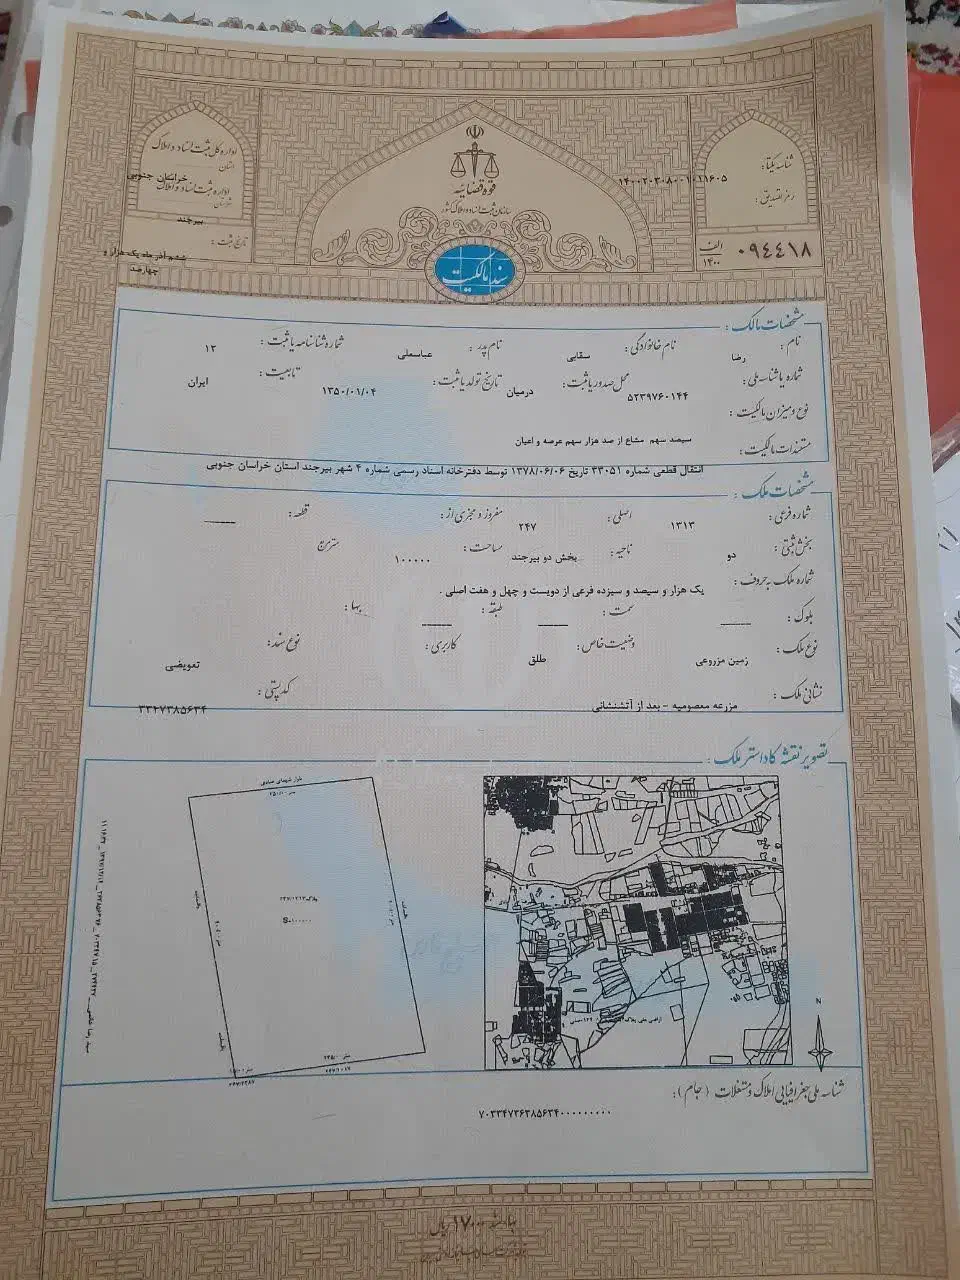 اداره کل ثبت اسناد و املاک
استان
خراسان جنوبی
اداره ثبت اسناد و املاک
شهرستان
بیرجند
تاریخ ثبت :
ششم آذر ماه یک هزار و
چهارصد
قوه قضائیه
سازمان ثبت اسناد و املاک کشور
سند مالکیت
شناسه یکتا :
۱۴۰۰۲۰۳۰۸۰۰۱۰۱۱۶۰۵
رمز تصدیق :
الف
۱۴۰۰
۰۹۴۴۱۸
مشخصات مالک :
نام : رضا نام خانوادگی : سقایی نام پدر : عباسعلی شماره شناسنامه یا ثبت : ۱۲
شماره یا شناسه ملی : ۵۲۳۹۷۶۰۱۴۴ محل صدور یا ثبت : درمیان تاریخ تولد یا ثبت : ۱۳۵۰/۰۱/۰۴ تابعیت : ایران
نوع و میزان مالکیت :
سیصد سهم مشاع از صد هزار سهم عرصه و اعیان
مستندات مالکیت :
انتقال قطعی شماره ۳۳۰۵۱ تاریخ ۱۳۷۸/۰۶/۰۶ توسط دفترخانه اسناد رسمی شماره ۴ شهر بیرجند استان خراسان جنوبی
مشخصات ملک :
شماره فرعی : ۱۳۱۳ اصلی : ۲۴۷ مفروز و مجزی از : قطعه :
بخش ثبتی : دو ناحیه : بخش دو بیرجند مساحت : ۱۰۰۰۰۰ متر مربع
شماره ملک به حروف :
یک هزار و سیصد و سیزده فرعی از دویست و چهل و هفت اصلی .
بلوک : سمت : طبقه : بها :
نوع ملک : زمین مزروعی وضعیت خاص : طلق کاربری : نوع سند : تعویضی
نشانی ملک : مزرعه معصومیه - بعد از آتشنشانی کدپستی : ۳۳۴۷۳۸۵۶۳۴
تصویر نقشه کاداستر ملک :
بلوار شهدای عبادی
S=۱۰۰۰۰۰
N
شناسه ملی جغرافیایی املاک و مستغلات (جام) :
۷۰۳۳۴۷۳۶۳۸۵۶۳۴۰۰۰۰۰۰۰۰۰